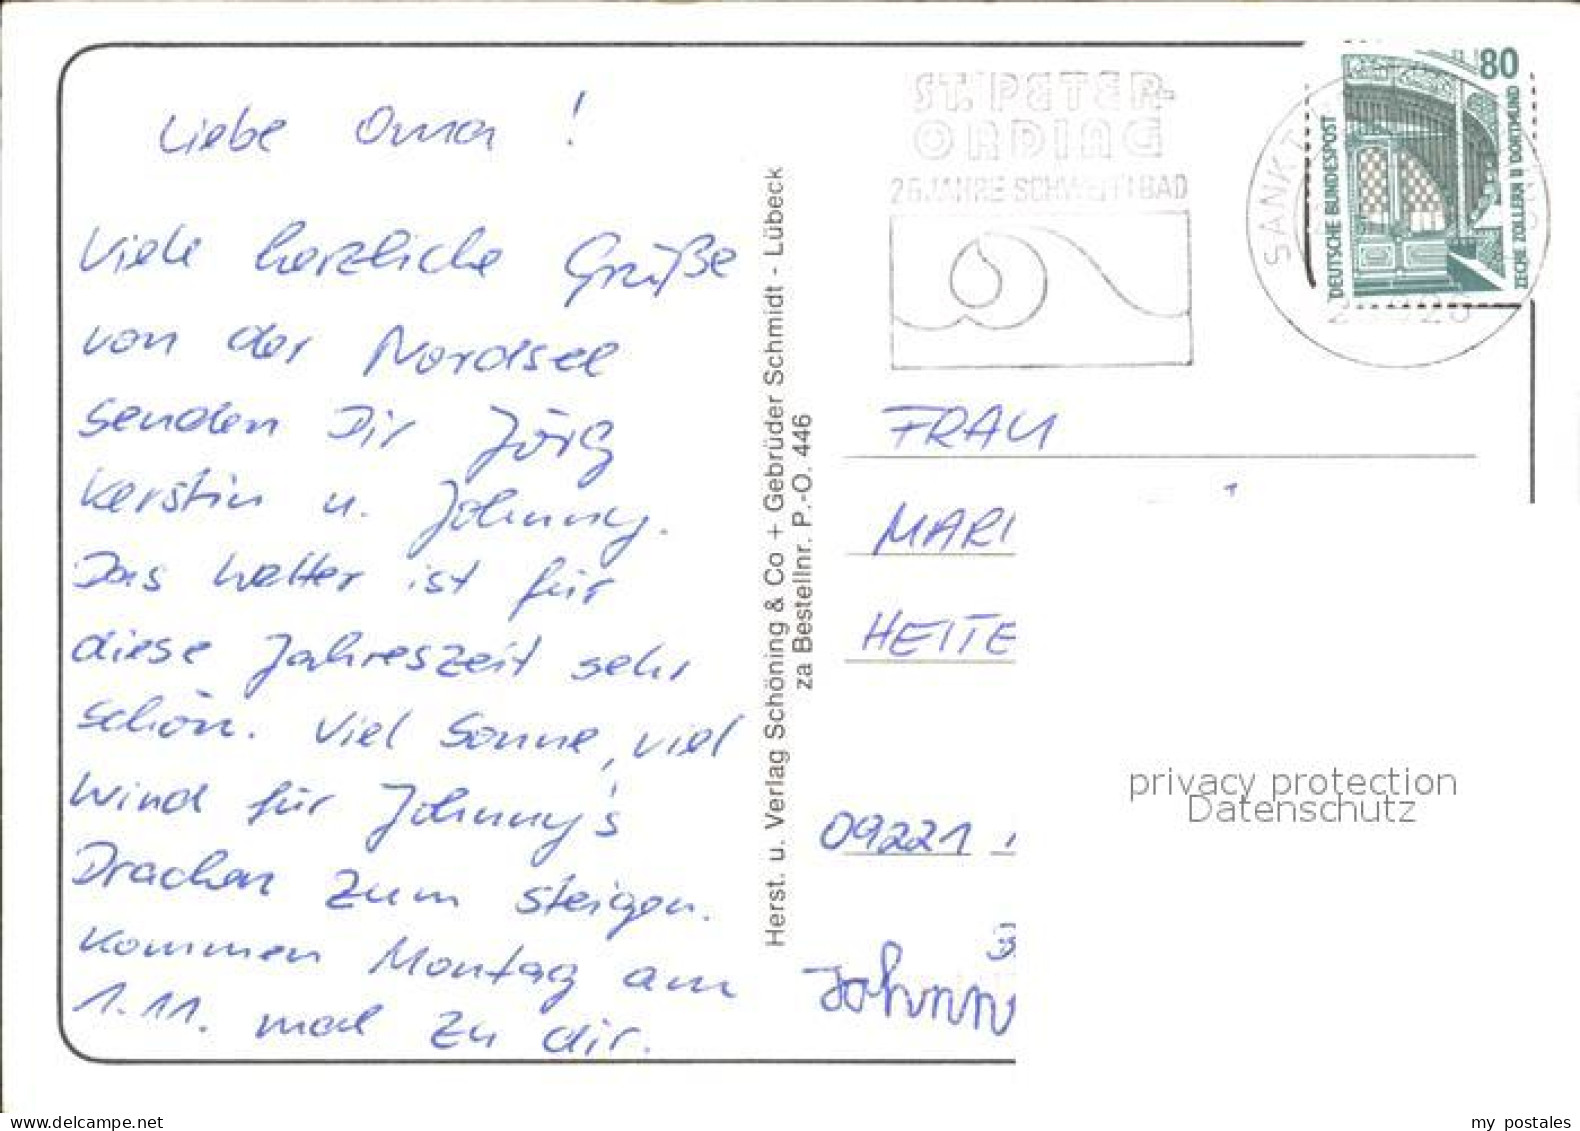 Liebe Oma!
Viele herzliche Grüße
von der Nordsee
senden Dir Jörg
Kerstin u. Johnny.
Das Wetter ist für
diese Jahreszeit sehr
schön. Viel Sonne, viel
Wind für Johnny's
Drachen zum steigen.
Kommen Montag am
1.11. mal zu dir.
Herst. u. Verlag Schöning & Co + Gebrüder Schmidt - Lübeck
za Bestellnr. P.-O. 446
ST. PETER-
ORDING
25 JAHRE SCHWEFELBAD
SANKT
80
DEUTSCHE BUNDESPOST
ZECHE ZOLLERN II DORTMUND
FRAU
MARI
HEITE
09221
Johnn
privacy protection
Datenschutz
www.delcampe.net
my postales